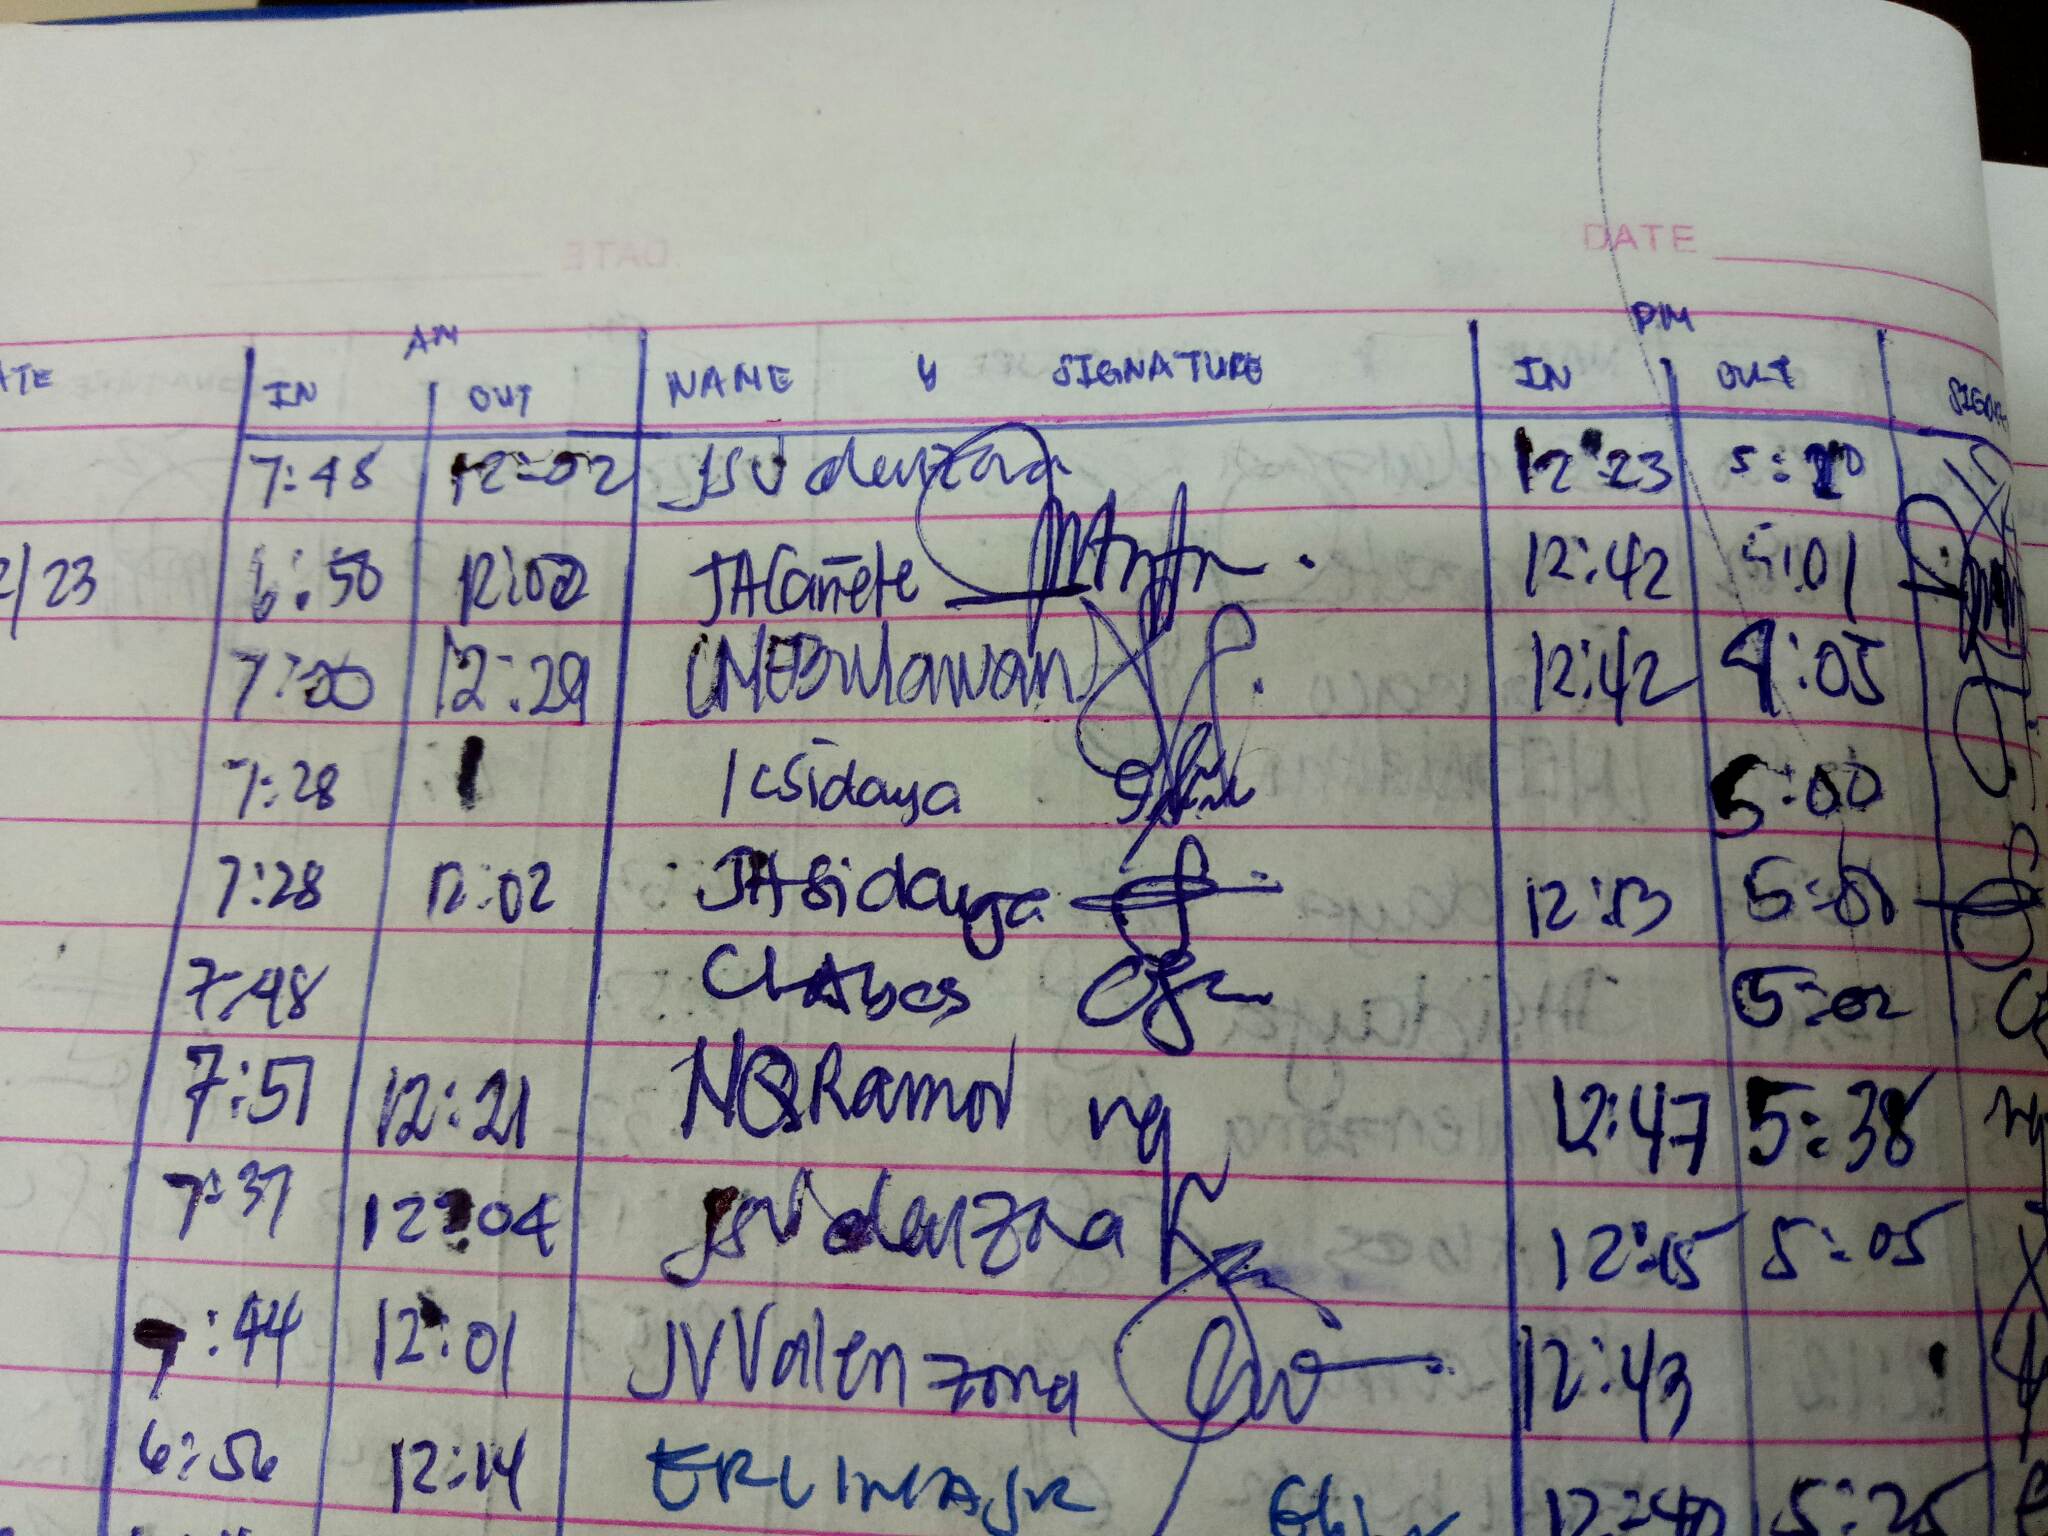 DATE
AM PM
ATE IN OUT NAME & SIGNATURE IN OUT SIGNA
7:48 12:02 12:23
2/23 6:58 12:02 JACañete 12:42 5:01
7:20 12:29 CMEBulawan 12:42 4:05
7:28 ICSidaya 5:00
7:28 12:02 JASidaya 12:13 5:01
7:48 CLAbes 5:02
7:51 12:21 NQRamos 12:47 5:38
7:37 12:04 12:15 5:05
7:44 12:01 JVValenzona 12:43
6:56 12:14 12:40 5:25